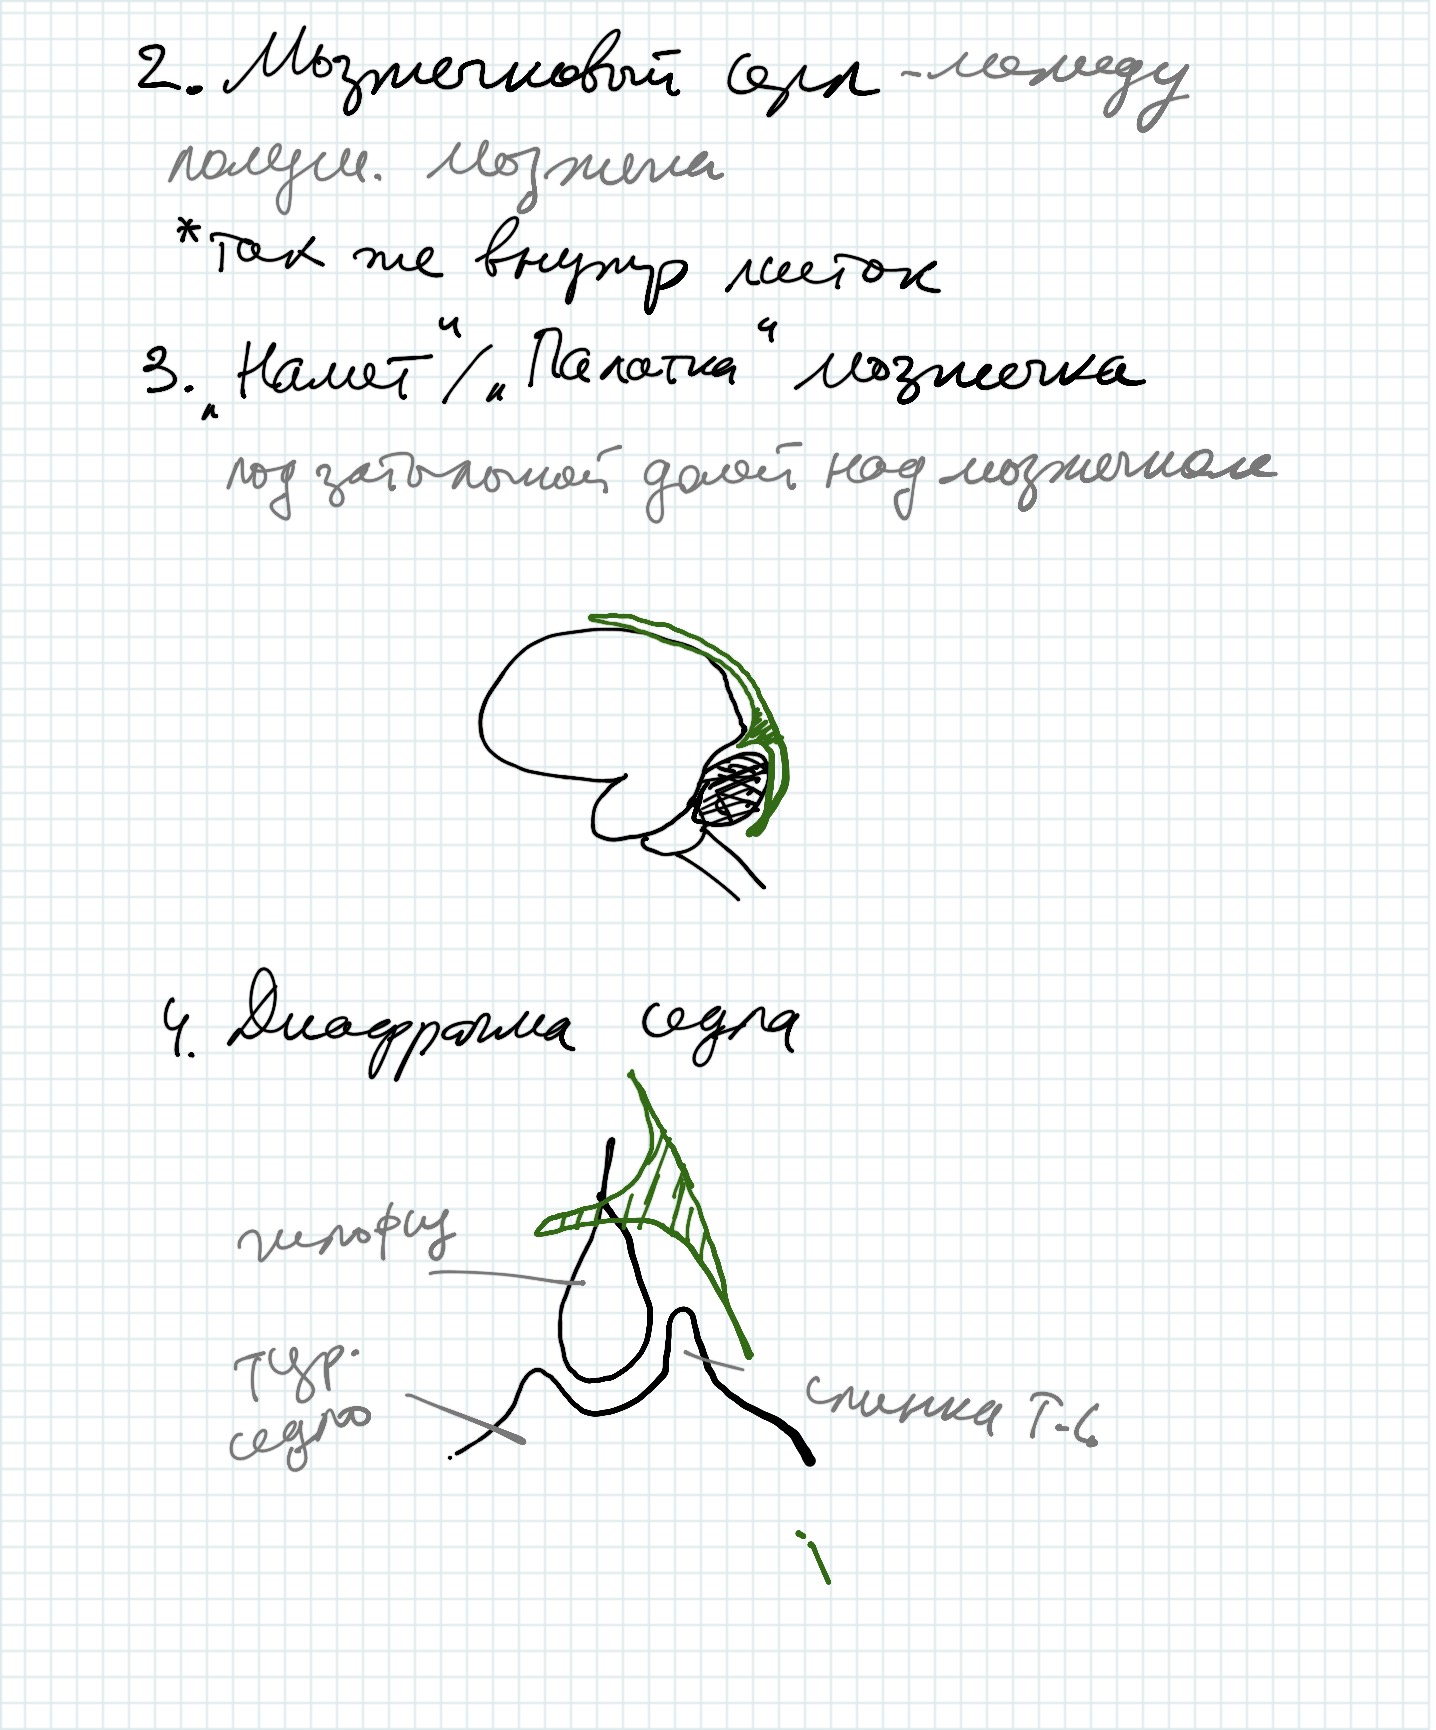 2. Мозжечковый серп - между
полуш. мозжечка
*так же внутр листок
3. „Намет“/„Палатка“ мозжечка
под затылочной долей над мозжечком
4. Диафрагма седла
гипофиз
тур.
седло
спинка Т-С.